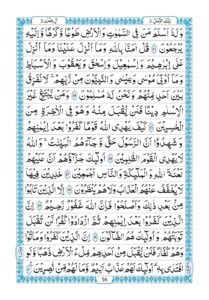 وَلَهٗۤ اَسْلَمَ مَنْ فِی السَّمٰوٰتِ وَالْاَرْضِ طَوْعًا وَّكَرْهًا وَّاِلَیْهِ
یُرْجَعُوْنَ قُلْ اٰمَنَّا بِاللّٰهِ وَمَاۤ اُنْزِلَ عَلَیْنَا وَمَاۤ اُنْزِلَ
عَلٰۤی اِبْرٰهِیْمَ وَاِسْمٰعِیْلَ وَاِسْحٰقَ وَیَعْقُوْبَ وَالْاَسْبَاطِ
وَمَاۤ اُوْتِیَ مُوْسٰی وَعِیْسٰی وَالنَّبِیُّوْنَ مِنْ رَّبِّهِمْ لَا نُفَرِّقُ
بَیْنَ اَحَدٍ مِّنْهُمْ وَنَحْنُ لَهٗ مُسْلِمُوْنَ وَمَنْ یَّبْتَغِ غَیْرَ
الْاِسْلَامِ دِیْنًا فَلَنْ یُّقْبَلَ مِنْهُ وَهُوَ فِی الْاٰخِرَةِ مِنَ
الْخٰسِرِیْنَ كَیْفَ یَهْدِی اللّٰهُ قَوْمًا كَفَرُوْا بَعْدَ اِیْمَانِهِمْ
وَشَهِدُوْۤا اَنَّ الرَّسُوْلَ حَقٌّ وَّجَآءَهُمُ الْبَیِّنٰتُ وَاللّٰهُ
لَا یَهْدِی الْقَوْمَ الظّٰلِمِیْنَ اُولٰٓئِكَ جَزَآؤُهُمْ اَنَّ عَلَیْهِمْ
لَعْنَةَ اللّٰهِ وَالْمَلٰٓئِكَةِ وَالنَّاسِ اَجْمَعِیْنَ خٰلِدِیْنَ فِیْهَا
لَا یُخَفَّفُ عَنْهُمُ الْعَذَابُ وَلَا هُمْ یُنْظَرُوْنَ اِلَّا الَّذِیْنَ تَابُوْا مِنْۢ
بَعْدِ ذٰلِكَ وَاَصْلَحُوْا فَاِنَّ اللّٰهَ غَفُوْرٌ رَّحِیْمٌ اِنَّ الَّذِیْنَ كَفَرُوْا
بَعْدَ اِیْمَانِهِمْ ثُمَّ ازْدَادُوْا كُفْرًا لَّنْ تُقْبَلَ
تَوْبَتُهُمْ وَاُولٰٓئِكَ هُمُ الضَّآلُّوْنَ اِنَّ الَّذِیْنَ كَفَرُوْا وَمَاتُوْا
وَهُمْ كُفَّارٌ فَلَنْ یُّقْبَلَ مِنْ اَحَدِهِمْ مِّلْءُ الْاَرْضِ ذَهَبًا وَّلَوِ
افْتَدٰی بِهٖ اُولٰٓئِكَ لَهُمْ عَذَابٌ اَلِیْمٌ وَّمَا لَهُمْ مِّنْ نّٰصِرِیْنَ
56